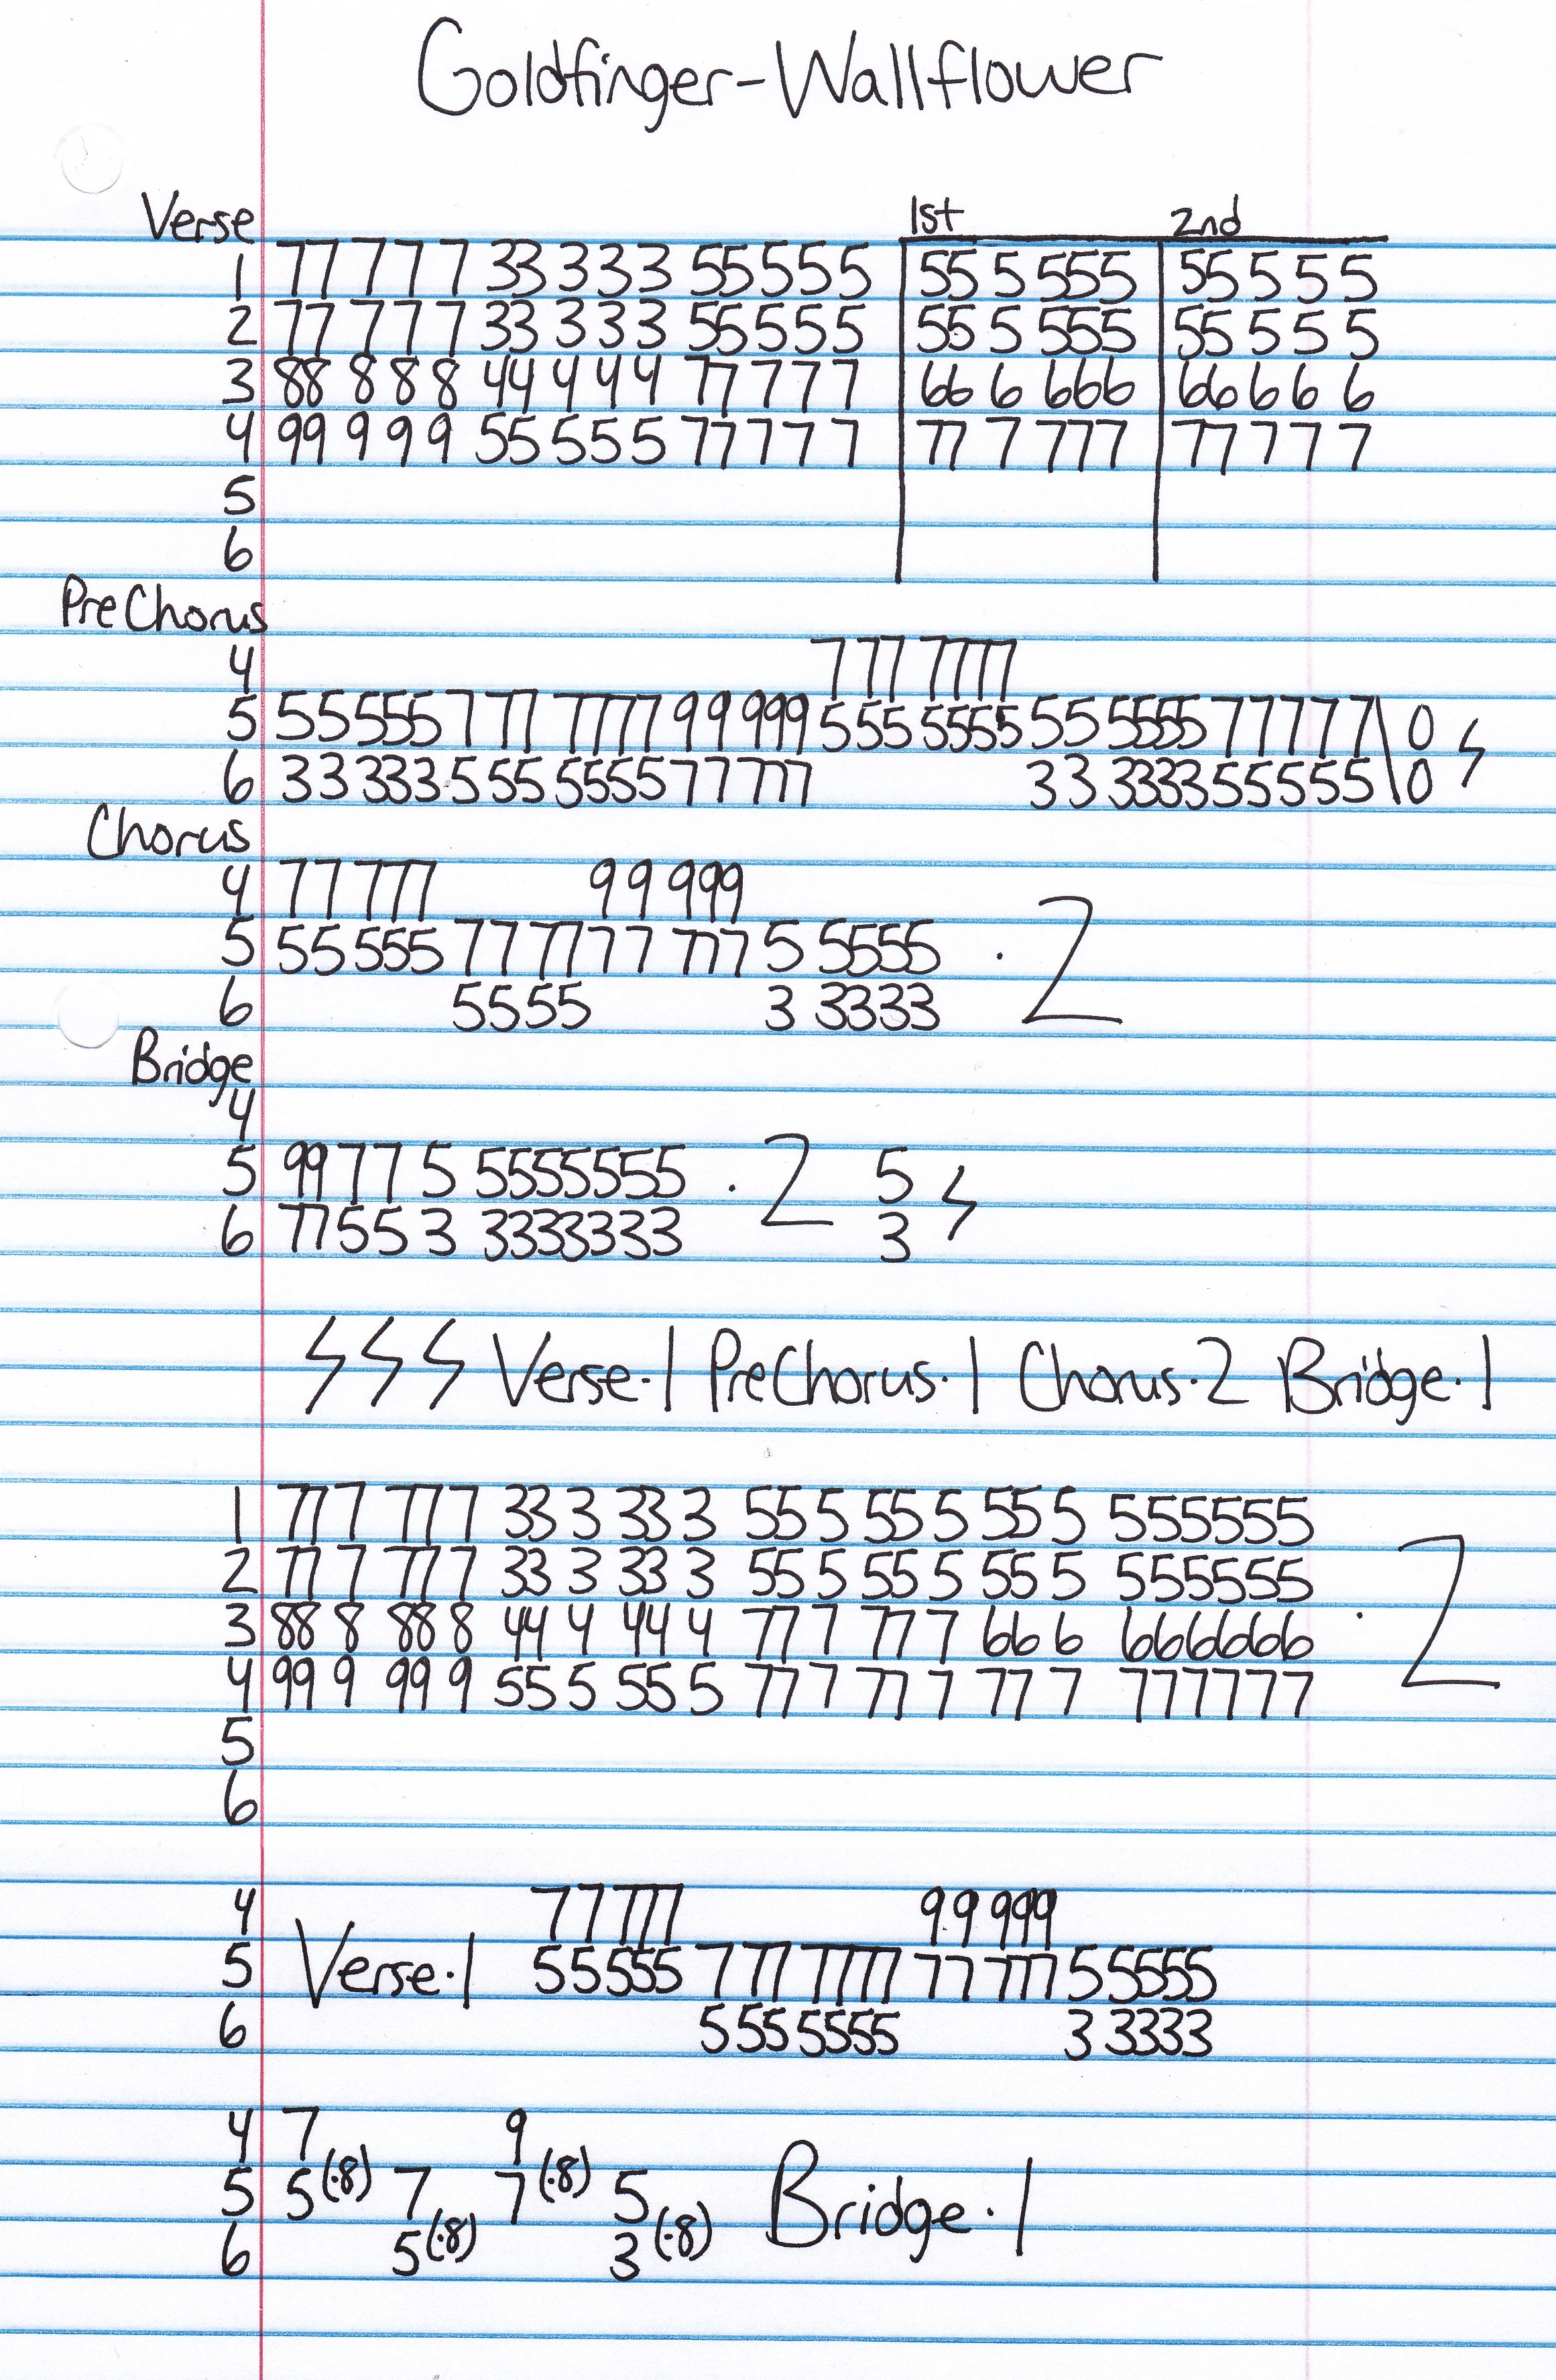 Goldfinger-Wallflower
Verse 1st 2nd
1 77 7 7 7 33 3 3 3 55 5 5 5 55 5 555 55 5 5 5
2 77 7 7 7 33 3 3 3 55 5 5 5 55 5 555 55 5 5 5
3 88 8 8 8 44 4 4 4 77 7 7 7 66 6 666 66 6 6 6
4 99 9 9 9 55 5 5 5 77 7 7 7 77 7 777 77 7 7 7
5
6
PreChorus
4 777 7777
5 55555 777 7777 99 999 555 5555 55 5555 77777\0
6 33 333 555 5555 77 777 33 3333 55555\0
Chorus
4 77 777 99 999
5 55 555 77 77 77 777 5 5555 .2
6 5555 3 3333
Bridge
4
5 99 77 5 5555555 .2 5
6 77 55 3 3333333 3
Verse.1 PreChorus.1 Chorus.2 Bridge.1
1 77 7 77 7 33 3 33 3 55 5 55 5 55 5 555555
2 77 7 77 7 33 3 33 3 55 5 55 5 55 5 555555
3 88 8 88 8 44 4 44 4 77 7 77 7 66 6 666666 .2
4 99 9 99 9 55 5 55 5 77 7 77 7 77 7 777777
5
6
4 77 777 99 999
5 Verse.1 55555 777 7777 77 777 55555
6 555 5555 3 3333
4 7 9
5 5(.8) 7 7(.8) 5 Bridge.1
6 5(.8) 3(.8)